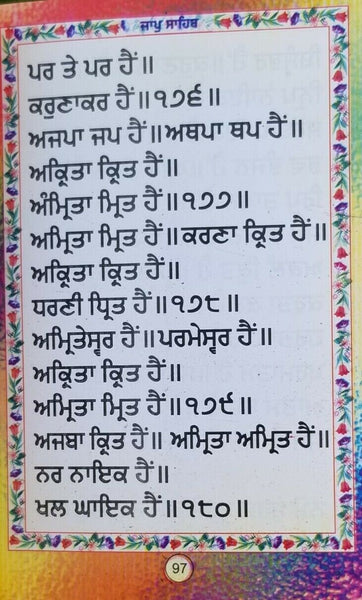 ਜਾਪੁ ਸਾਹਿਬ
ਪਰ ਤੇ ਪਰ ਹੈਂ॥
ਕਰੁਣਾਕਰ ਹੈਂ॥੧੭੬॥
ਅਜਪਾ ਜਪ ਹੈਂ॥ਅਥਪਾ ਥਪ ਹੈਂ॥
ਅਕ੍ਰਿਤਾ ਕ੍ਰਿਤ ਹੈਂ॥
ਅੰਮ੍ਰਿਤਾ ਮ੍ਰਿਤ ਹੈਂ॥੧੭੭॥
ਅਮ੍ਰਿਤਾ ਮ੍ਰਿਤ ਹੈਂ॥ਕਰਣਾ ਕ੍ਰਿਤ ਹੈਂ॥
ਅਕ੍ਰਿਤਾ ਕ੍ਰਿਤ ਹੈਂ॥
ਧਰਣੀ ਧ੍ਰਿਤ ਹੈਂ॥੧੭੮॥
ਅਮ੍ਰਿਤੇਸ੍ਵਰ ਹੈਂ॥ਪਰਮੇਸ੍ਵਰ ਹੈਂ॥
ਅਕ੍ਰਿਤਾ ਕ੍ਰਿਤ ਹੈਂ॥
ਅਮ੍ਰਿਤਾ ਮ੍ਰਿਤ ਹੈਂ॥੧੭੯॥
ਅਜਬਾ ਕ੍ਰਿਤ ਹੈਂ॥ ਅਮ੍ਰਿਤਾ ਅਮ੍ਰਿਤ ਹੈਂ॥
ਨਰ ਨਾਇਕ ਹੈਂ॥
ਖਲ ਘਾਇਕ ਹੈਂ॥੧੮੦॥
97